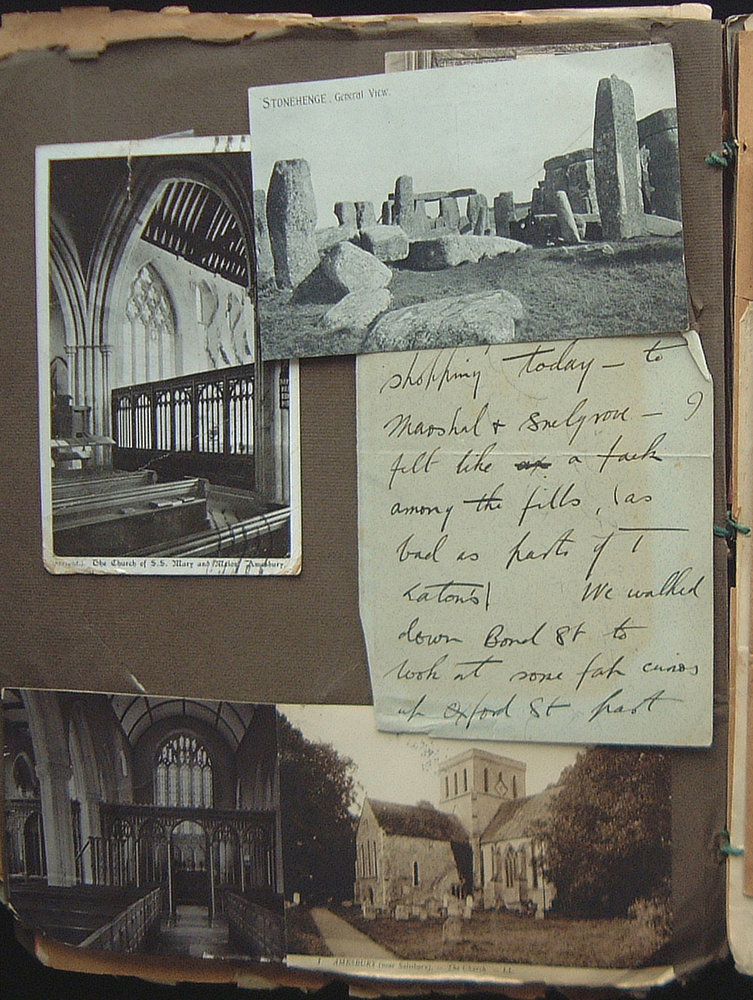 STONEHENGE. General View.
shopping today – to
Marshal + Snelgrove – I
felt like a
among the frills, as
bad as parts of T
Eaton's! We walked
down Bond St to
look at some fab curios
up Oxford St past
The Church of S.S. Mary and Melor, Amesbury
1 AMESBURY (near Salisbury). – The Church – LL.